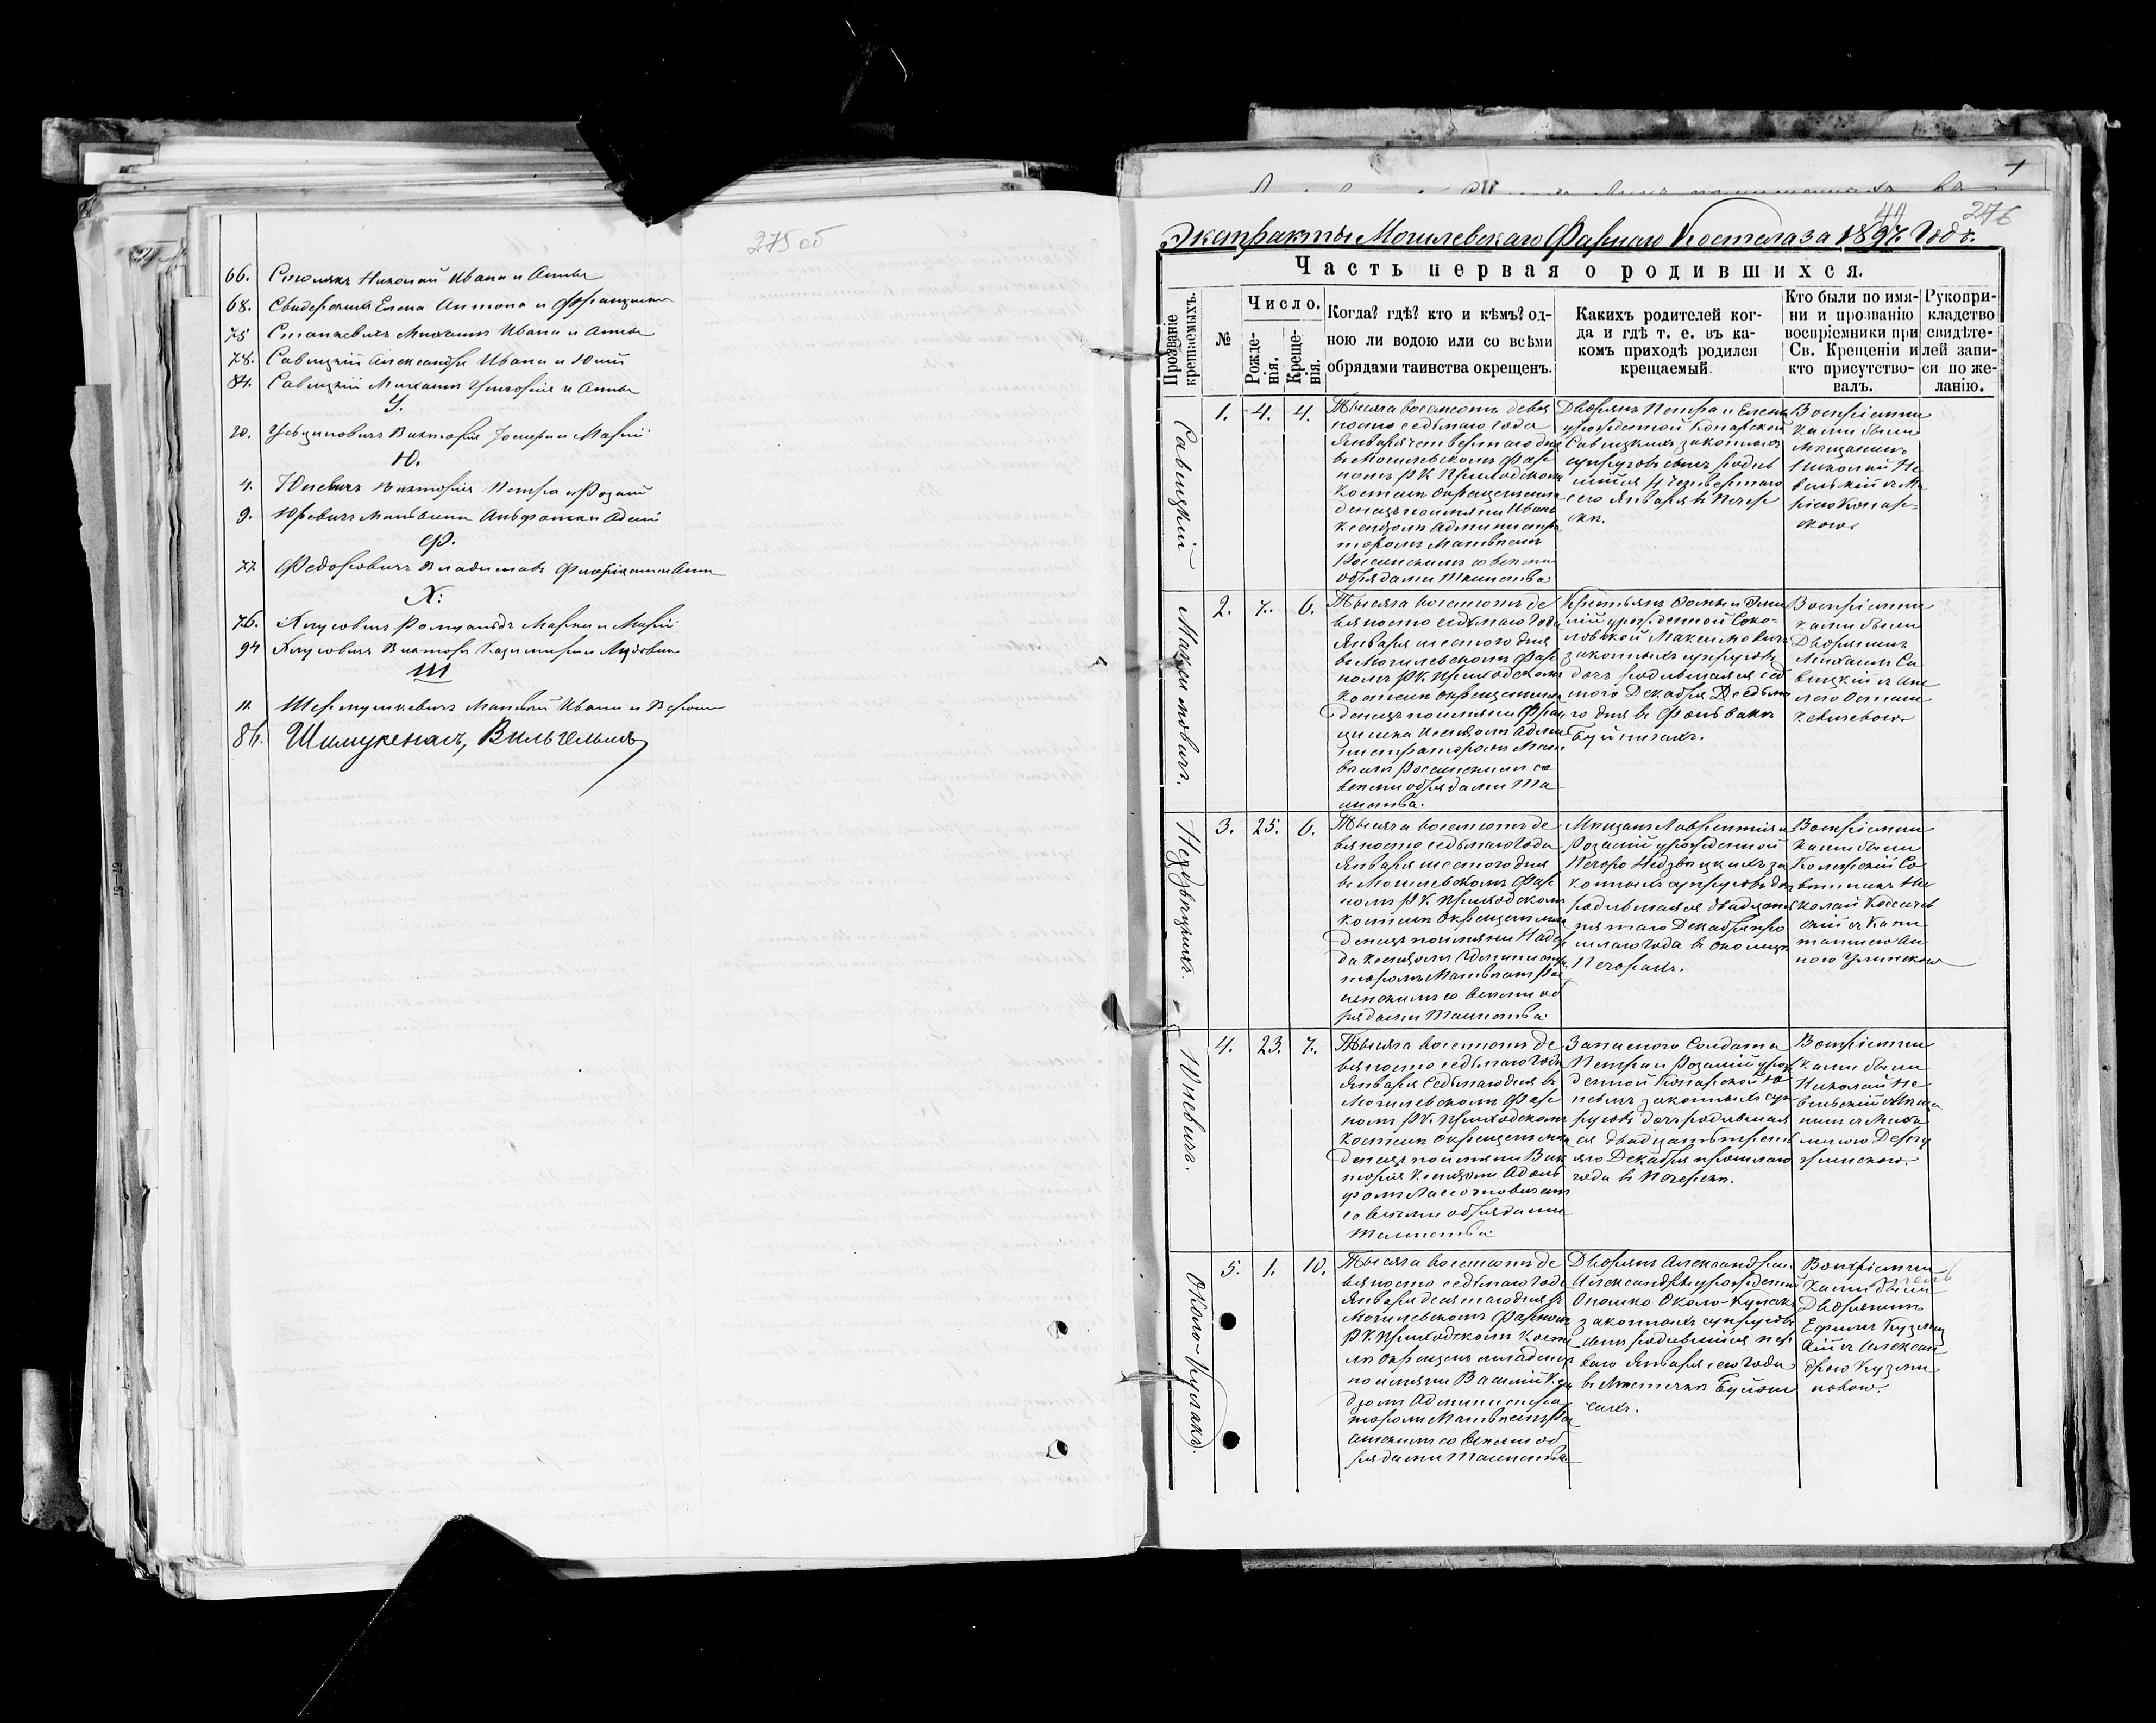 275 об
66. Столяръ Николай Ивана и Анны
68. Свидерская Елена Антона и Францишки
75 Станкевичъ Михаилъ Ивана и Анны
78. Савицкій Александръ Ивана и Юліи
84. Савицкій Михаилъ Григорія и Анны
У.
20. Викторія Іосифа и Маріи
Ю.
4. Юневичъ Викторія Петра и Розаліи
9. Юревичъ Мальвина Адели
Ф.
77. Федоровичъ Владиславъ Анны
Х.
76. Хлусовичъ Ромуальдъ Марка и Маріи
94 Хлусовичъ Викторъ Казимира и Людовики
Ш
11. Матвѣй Ивана и
86. Вильгельмъ
44 276
Экстракты Могилевскаго Фарнаго Костела за 1897 Годъ.
Часть первая о родившихся.
Прозваніе крещаемыхъ.
№
Число.
Рожденія.
Крещенія.
Когда? гдѣ? кто и кѣмъ? од-
ною ли водою или со всѣми
обрядами таинства окрещенъ.
Какихъ родителей ког-
да и гдѣ т. е. въ ка-
комъ приходѣ родился
крещаемый.
Кто были по имя-
ни и прозванію
воспріемники при
Св. Крещеніи и
кто присутство-
валъ.
Рукопри-
кладство
свидѣте-
лей запи-
си по же-
ланію.
Савицкій
1. 4. 4.
Тысяча восемьсотъ девя
носто седьмаго года
Января четвертаго дня
въ Могилевскомъ Фар
номъ Р. К. Приходскомъ
Костелѣ окрещенъ мла
денецъ по имяни Иванъ
Ксендзомъ Администра
торомъ Матвѣемъ
со всѣми
обрядами Таинства.
Дворянъ Петра и Елены
урожденной Конарской
Савицкихъ законныхъ
супруговъ сынъ родив
шійся четвертаго
сего Января въ Печер
скѣ.
Воспріемни
ками были
Мѣщанинъ
Николай Не
вельскій съ Ма
ріею Конар-
скою.
Максимовичъ.
2. 7. 6.
Тысяча восемьсотъ де
вяносто седьмаго года
Января шестого дня
въ Могилевскомъ Фар
номъ Р. К. Приходскомъ
Костелѣ окрещенъ мла
денецъ по имяни Фран
цишка Ксендзомъ Адми
нистраторомъ Мат
вѣемъ со
всѣми обрядами Та
инства.
Крестьянъ Фомы и Эми
ліи урожденной Соко-
ловской Максимовичъ
законныхъ супруговъ
дочь родившаяся сед
мого Декабря Седьма
го дня въ Фольваркѣ
Буйничахъ.
Воспріемни
ками были
Дворянинъ
Михаилъ Са
вицкій съ Ан
ною Стани
кевичевою.
Недзвѣцкихъ.
3. 25. 6.
Тысяча восемьсотъ де
вяносто седьмаго года
Января шестого дня
въ Могилевскомъ Фар
номъ Р. К. Приходскомъ
Костелѣ окрещенъ мла
денецъ по имяни Надеж
да Ксендзомъ Администра
торомъ Матвѣемъ
со всѣми об
рядами Таинства.
Мѣщанъ Лаврентія и
Розаліи урожденной
Печоро Недзвѣцкихъ за
конныхъ супруговъ дочь
родившаяся двадцать
пятаго Декабря про
шлаго года въ околицѣ
Печорахъ.
Воспріемни
ками были
Совѣтникъ Ни
колай
скій съ Капи
таншею Ан
ною
Юневичъ.
4. 23. 7.
Тысяча восемьсотъ де
вяносто седьмаго года
Января Седьмаго дня въ
Могилевскомъ Фар
номъ Р. К. Приходскомъ
Костелѣ окрещенъ мла
денецъ по имяни Вик
торія Ксендзомъ Адоль
фомъ
со всѣми обрядами
Таинства.
Запасного Солдата
Петра и Розаліи урож
денной Конарской Ю
невичъ законныхъ суп
руговъ дочь родившая
ся двадцать треть
яго Декабря прошлаго
года въ Печерскѣ.
Воспріемни
ками были
Николай Не
вельскій Мѣща
нинъ съ Миха
линою
Около-Кулакъ.
5. 1. 10.
Тысяча восемьсотъ де
вяносто седьмаго года
Января десятаго дня въ
Могилевскомъ Фарномъ
Р. К. Приходскомъ Косте
лѣ окрещенъ младенецъ
по имяни Василій Ксен
дзомъ Администра
торомъ Матвѣемъ
со всѣми об
рядами Таинства
Дворянъ Александра и
Александры урожденной
Опошко Около-Кулакъ
законныхъ супруговъ
сынъ родившійся пер
ваго Января сего года
въ Мѣстечкѣ Буйни
чахъ.
Воспріемни
ками были
Дворянинъ
Ефимъ
съ Алексан
дрою Кузми
новою.